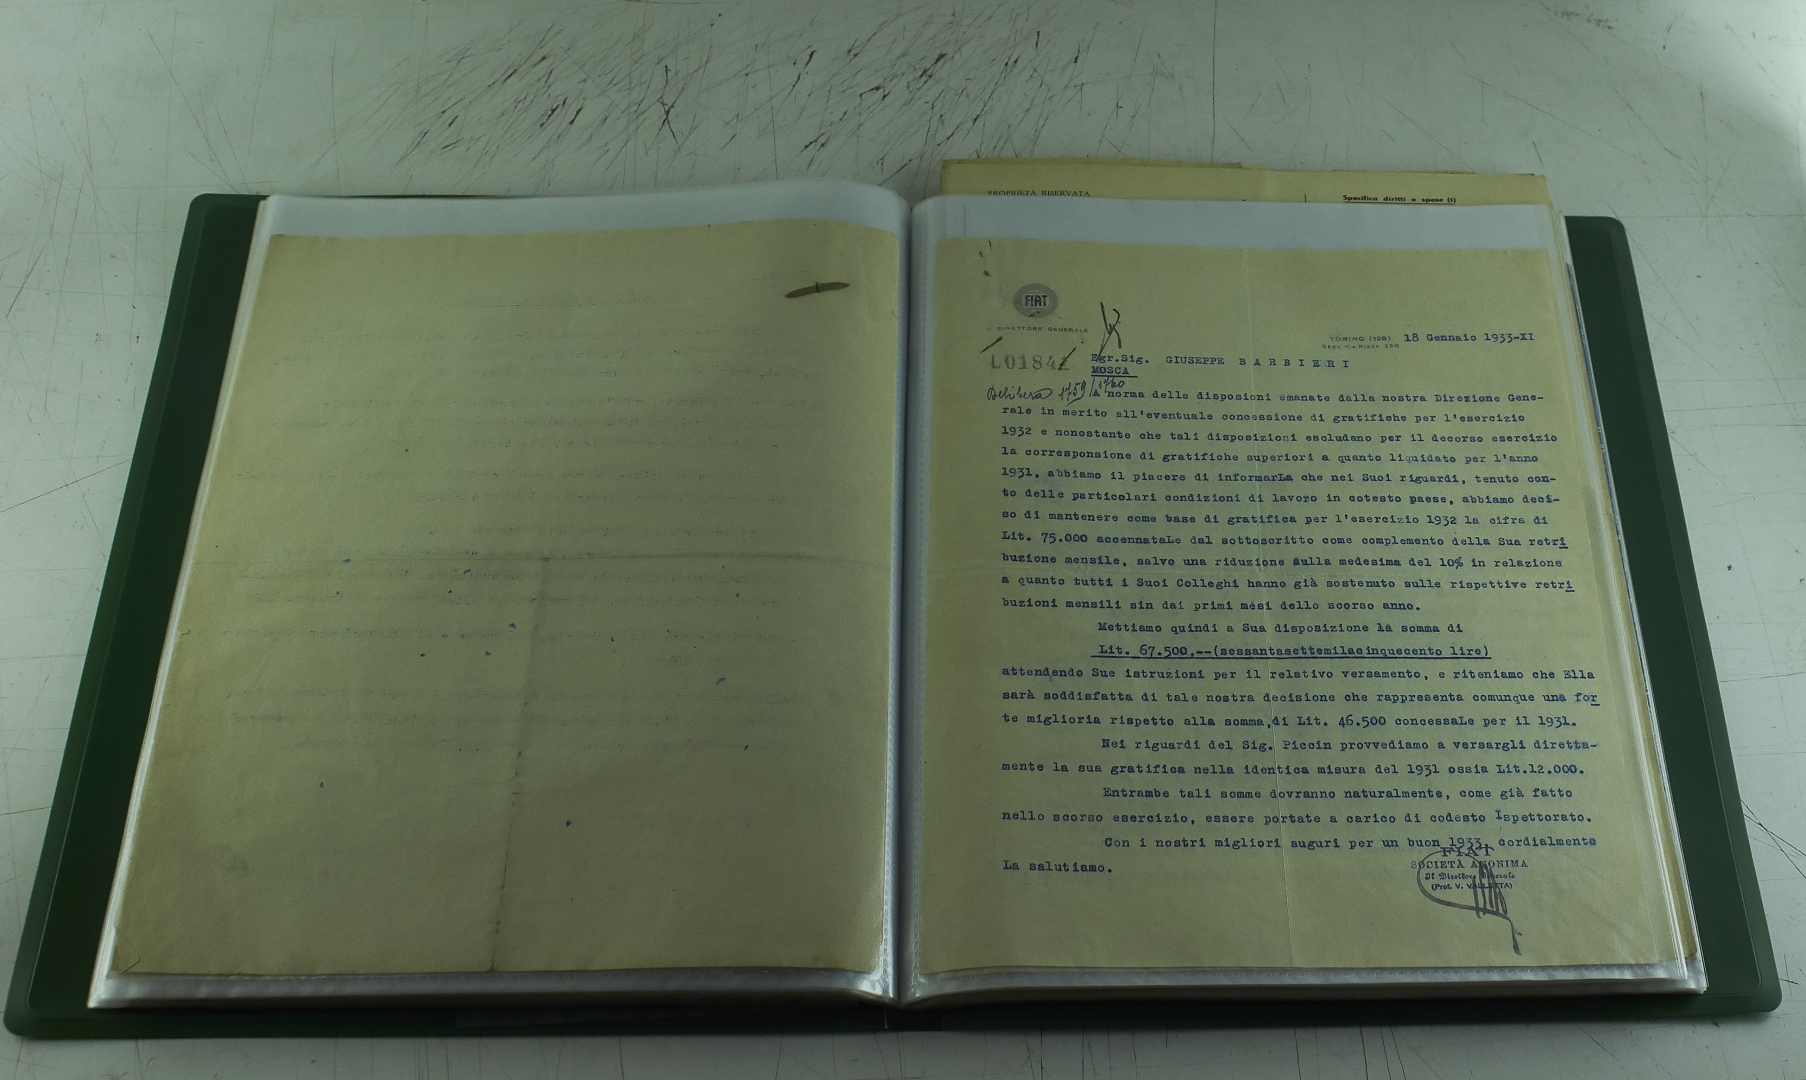 PROPRIETÀ RISERVATA
Specifica diritti e spese (1)
FIAT
IL DIRETTORE GENERALE
TORINO (128) 18 Gennaio 1933-XI
SEDE VIA NIZZA 250
L01841
Egr.Sig. GIUSEPPE B A R B I E R I
MOSCA
Delibera 1759/1760
A norma delle disposioni emanate dalla nostra Direzione Gene-
rale in merito all'eventuale concessione di gratifiche per l'esercizio
1932 e nonostante che tali disposizioni escludano per il decorso esercizio
la corresponsione di gratifiche superiori a quanto liquidato per l'anno
1931, abbiamo il piacere di informarLa che nei Suoi riguardi, tenuto con-
to delle particolari condizioni di lavoro in cotesto paese, abbiamo deci-
so di mantenere come base di gratifica per l'esercizio 1932 la cifra di
Lit. 75.000 accennataLe dal sottoscritto come complemento della Sua retri
buzione mensile, salvo una riduzione sulla medesima del 10% in relazione
a quanto tutti i Suoi Colleghi hanno già sostenuto sulle rispettive retri
buzioni mensili sin dai primi mesi dello scorso anno.
Mettiamo quindi a Sua disposizione la somma di
Lit. 67.500,--(sessantasettemilacinquecento lire)
attendendo Sue istruzioni per il relativo versamento, e riteniamo che Ella
sarà soddisfatta di tale nostra decisione che rappresenta comunque una for
te miglioria rispetto alla somma di Lit. 46.500 concessaLe per il 1931.
Nei riguardi del Sig. Piccin provvediamo a versargli diretta-
mente la sua gratifica nella identica misura del 1931 ossia Lit.12.000.
Entrambe tali somme dovranno naturalmente, come già fatto
nello scorso esercizio, essere portate a carico di codesto Ispettorato.
Con i nostri migliori auguri per un buon 1933 cordialmente
La salutiamo.
FIAT
SOCIETÀ ANONIMA
Il Direttore Generale
(Prof. V. VALLETTA)